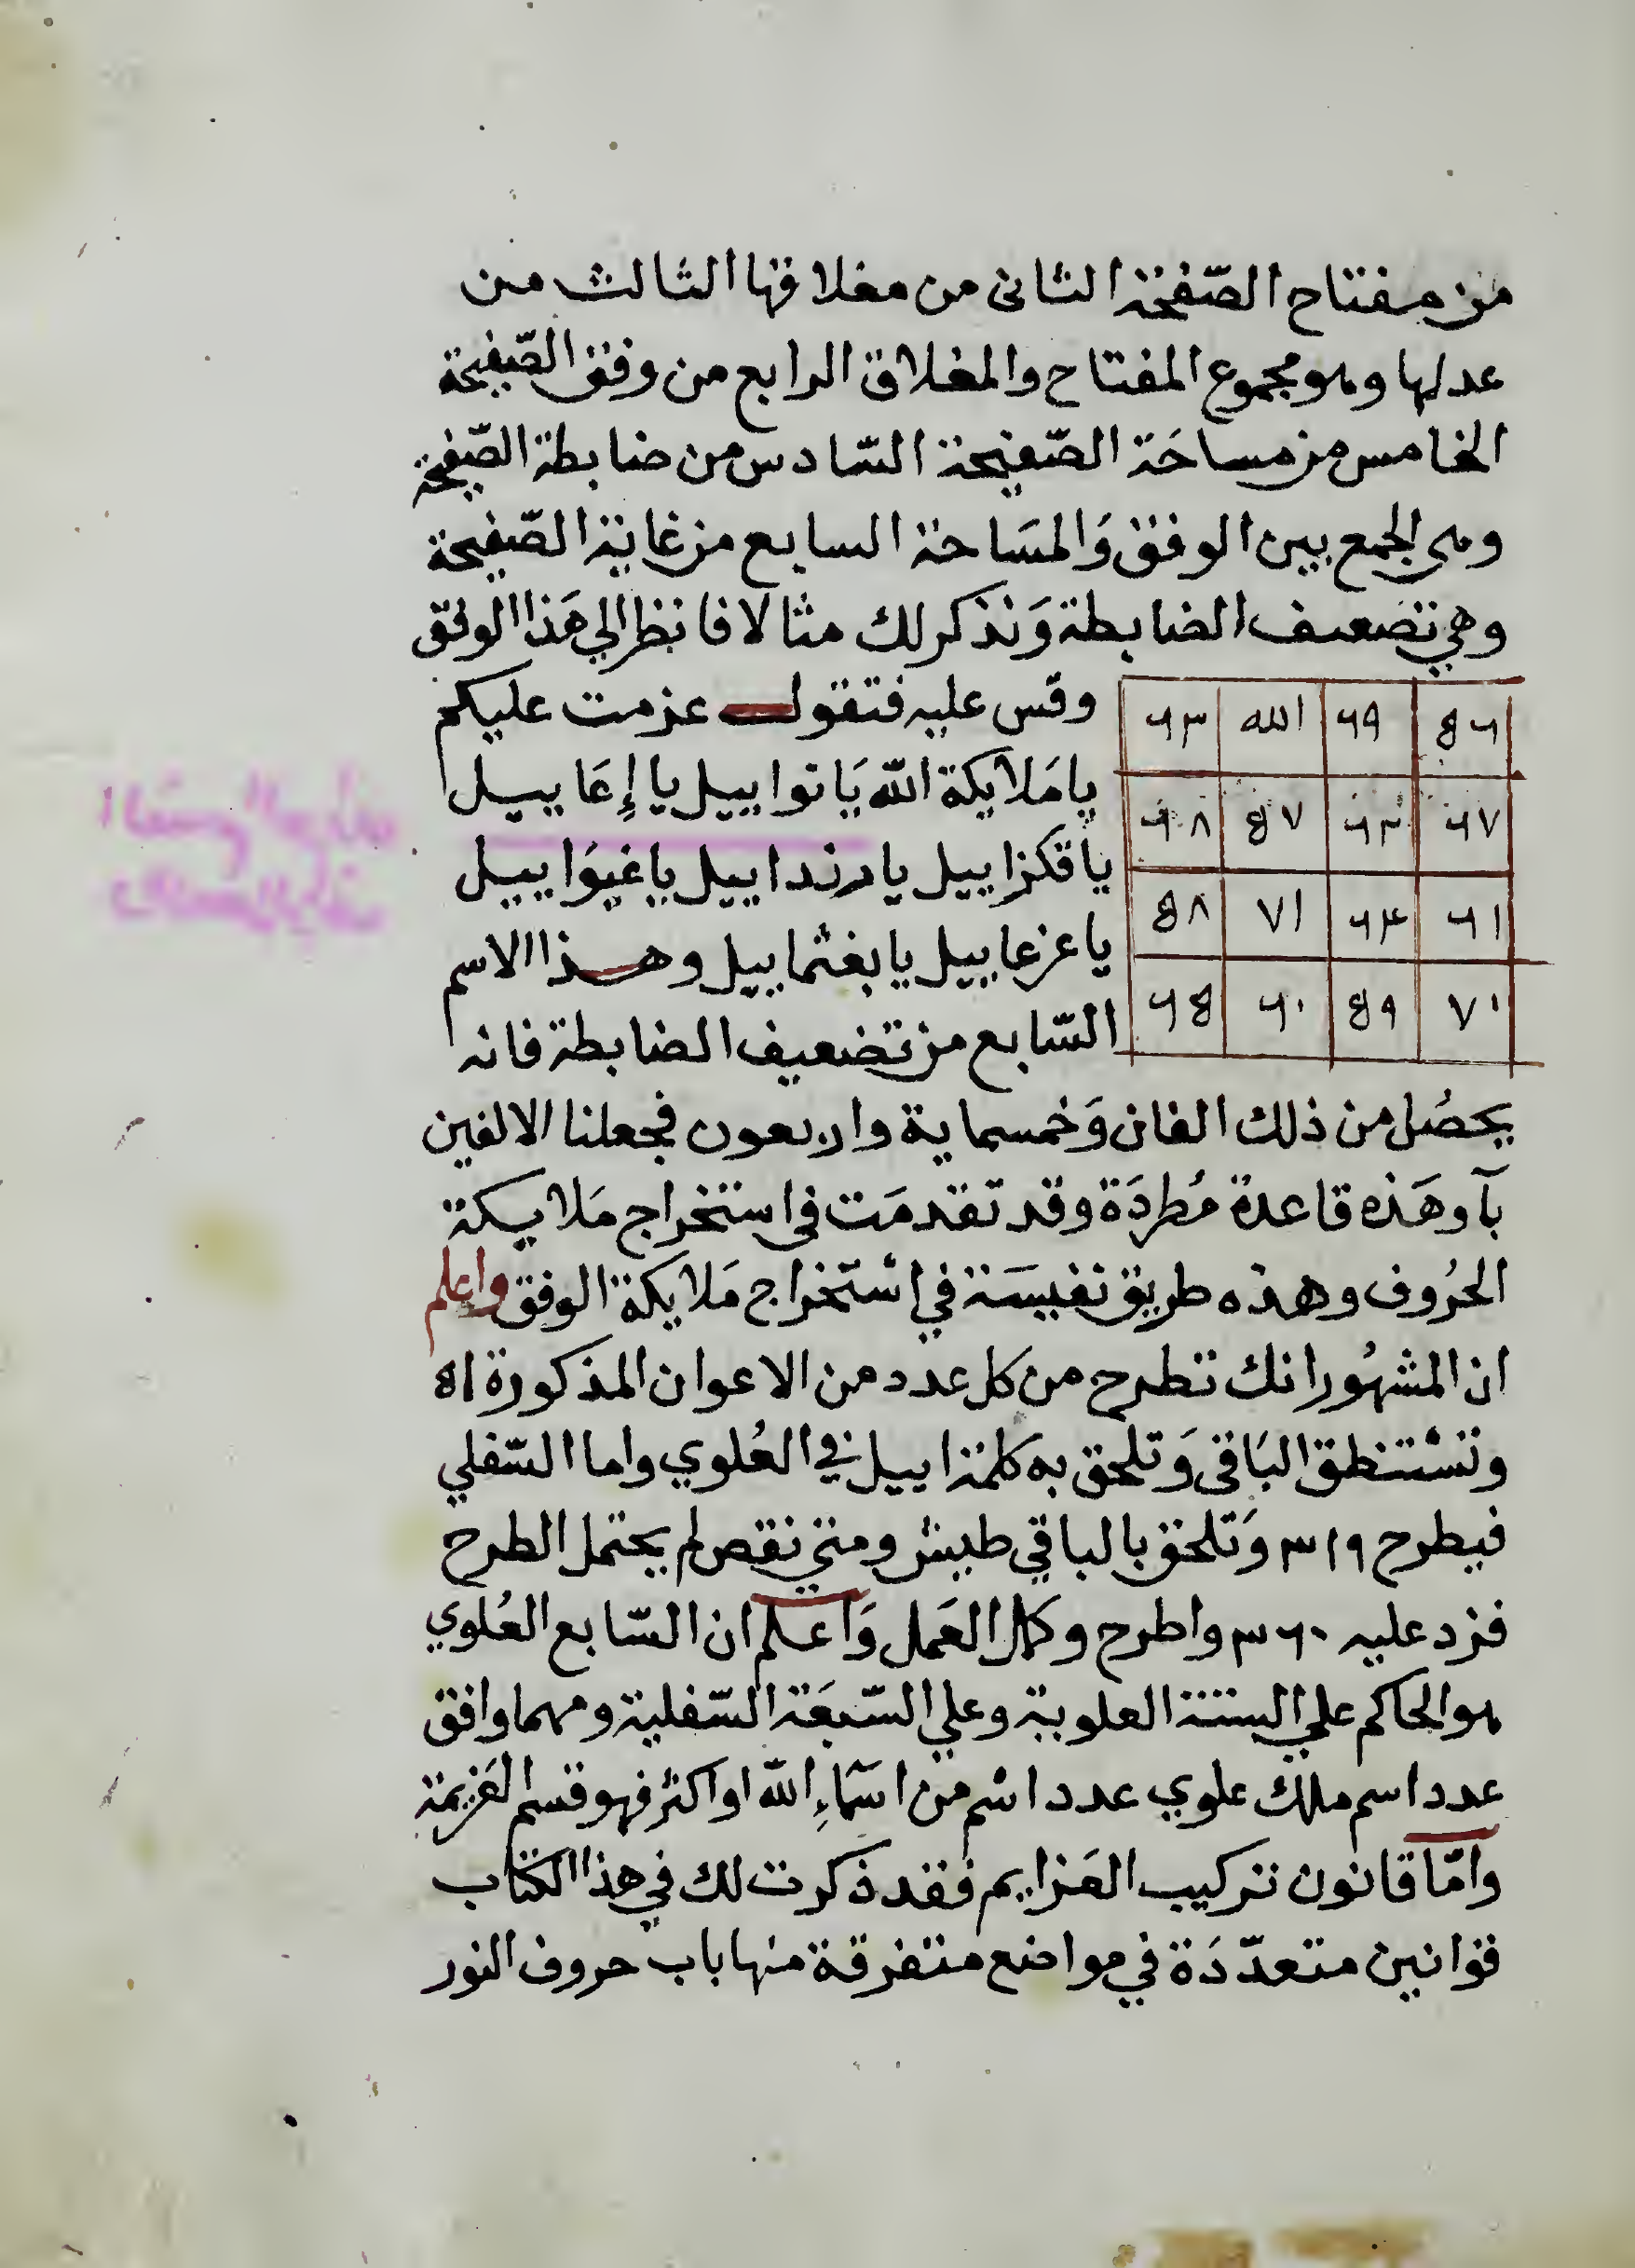 من مفتاح الصّفيحة الثانى من مغلاقها الثالث من
عدلها وهو مجموع المفتاح والمغلاق الرابع من وفق الصّفيحة
الخامس من مساحَة الصّفيحة السّادس من ضابطة الصّفيحة
وهى الجمع بين الوفق وَالمسَاحة السابع من غاية الصّفيحة
وهي تضعيف الضابطة وَنذكر لك مثالا فانظر الي هَذا الوفق
وقس عليه فتقول عزمت عليكم
يا مَلايكة الله يَا نواييل يا إِعَاييل
يا قكزاييل يا درنداييل يا غيوَاييل
يا عزعاييل يا بغثماييل وهذا الاسم
السّابع من تضعيف الضابطة فانه
٥٦ ٦٩ الله ٦٣
٦٧ ٦٢ ٥٧ ٦٨
٦١ ٦٤ ٧١ ٥٨
٧٠ ٥٩ ٦٠ ٦٥
يحصُل من ذلك الفان وَخمسماية واربعون فجعلنا الالفين
بآ وهَذه قاعدة مُطردَة وقد تقدمَت فى استخراج مَلايكة
الحُروف وهذه طريق نفيسَة في اسْتخراج مَلايكة الوفق واعلم
ان المشهُور انك تطرح من كل عدد من الاعوان المذكورة ٥١
وتسْتنطق البَاقى وَتلحق به كلمة اييل في العُلوي واما السّفلي
فيطرح ٣١٩ وَتلحق بالباقي طيش ومتي نقص لم يحتمل الطرح
فزد عليه ٣٦٠ واطرح وكمل العَمل وَاعلم ان السّابع العُلوي
هو الحاكم علي الستة العلوية وعلي السّبعَة السّفلية ومهما وافق
عدد اسم ملك علوي عدد اسْم من اسَمآءِ الله او اكثر فهو قسم العَزيمة
وامّا قانون تركيب العَزايم فقد ذكرت لك في هذا الكتاب
قوانين متعدّدَة في مواضع متفرقة منها باب حروف النور